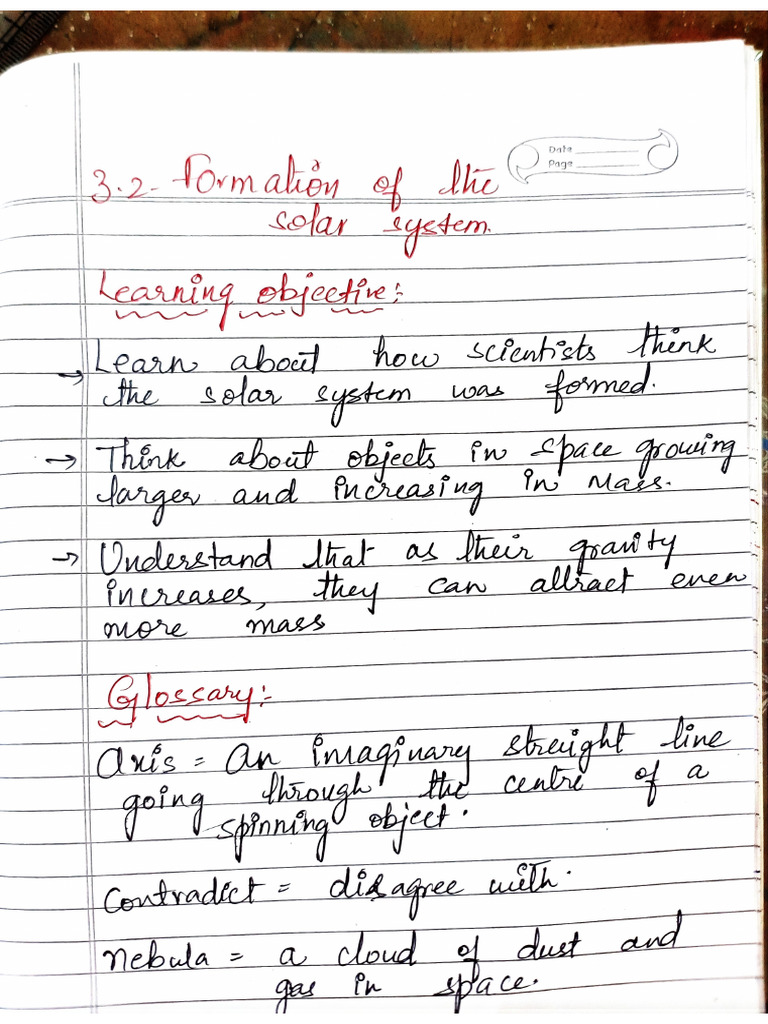 Date
Page
3.2. Formation of the
solar system.
Learning objective:
→ Learn about how scientists think
the solar system was formed.
→ Think about objects in space growing
larger and increasing in Mass.
→ Understand that as their gravity
increases, they can attract even
more mass
Glossary:
Axis = An imaginary streight line
going through the centre of a
spinning object.
Contradict = disagree with.
Nebula = a cloud of dust and
gas in space.